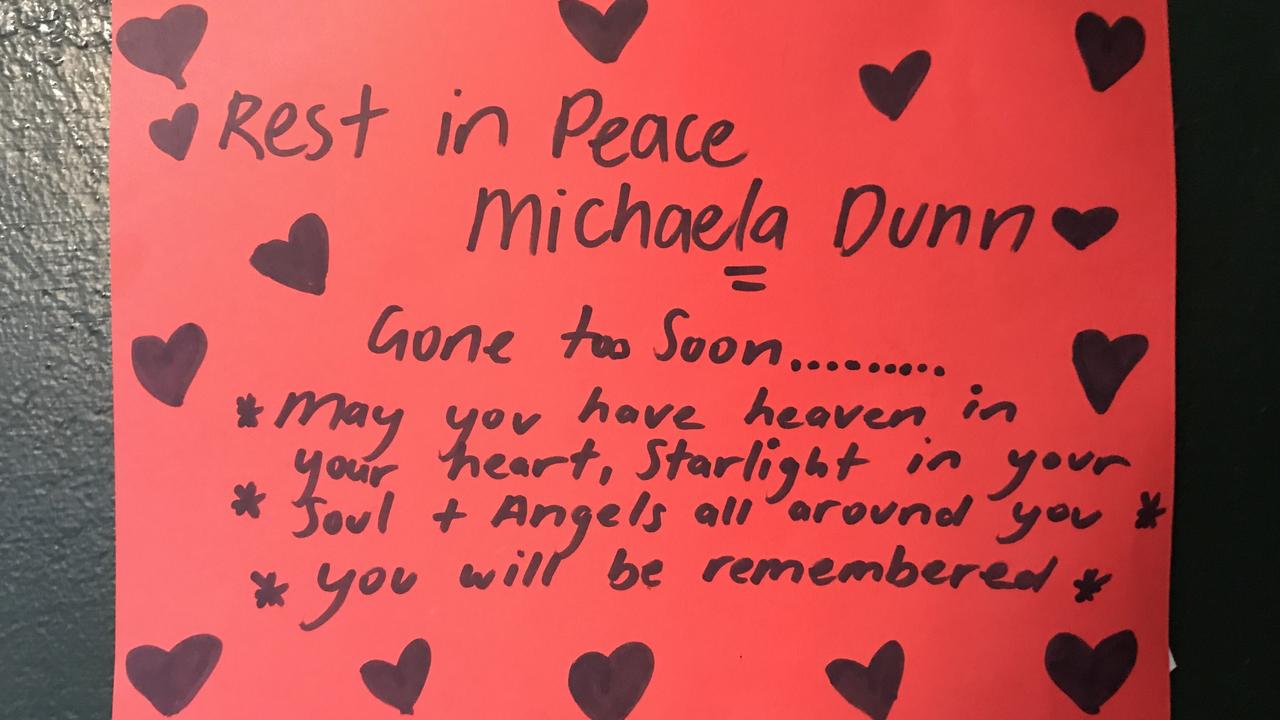 Rest in Peace
Michaela Dunn
Gone too Soon.........
*May you have heaven in
your heart, Starlight in your
* Soul + Angels all around you *
* you will be remembered *